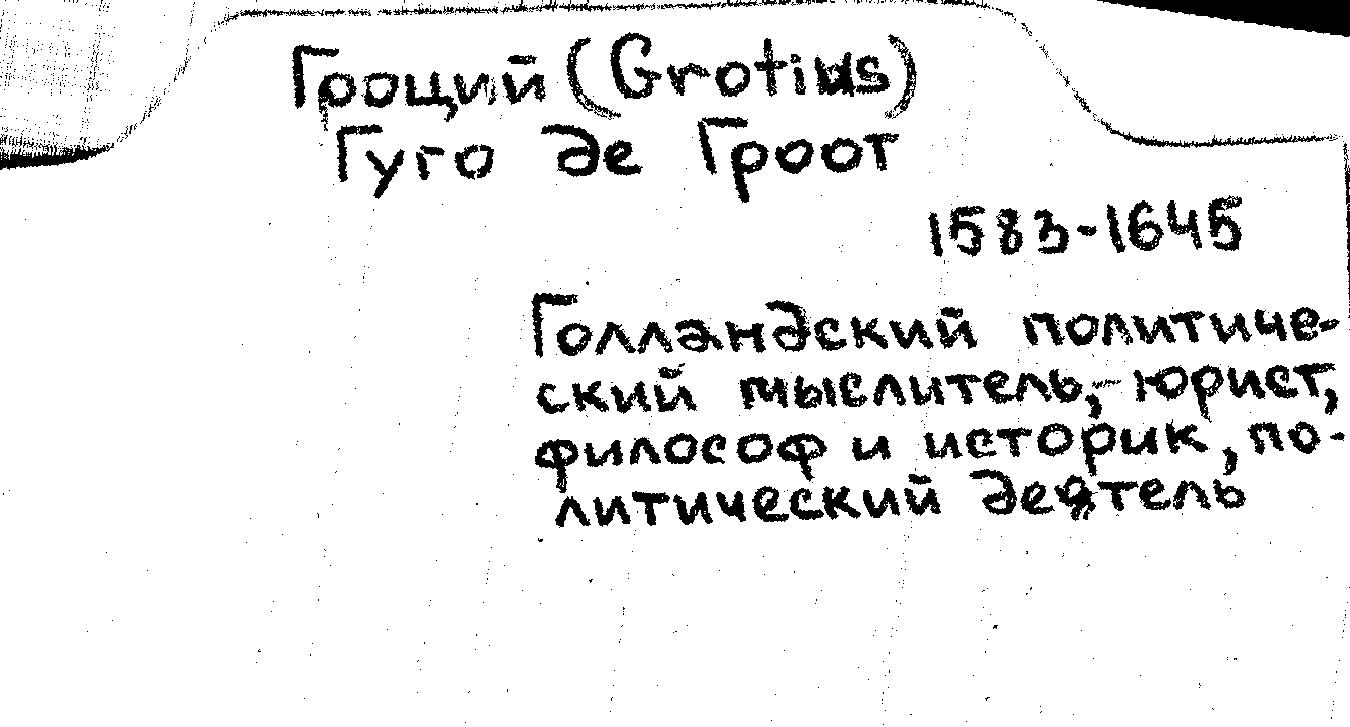 Гроций (Grotius)
Гуго де Гроот
1583-1645
Голландский политиче-
ский мыслитель,- юрист,
философ и историк, по-
литический деятель